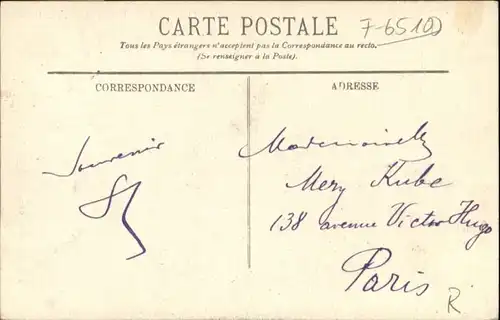 CARTE POSTALE
7-6510
Tous les Pays étrangers n'acceptent pas la Correspondance au recto.
(Se renseigner à la Poste).
CORRESPONDANCE
ADRESSE
Souvenir
Mademoiselle
Mery Kube
138 avenue Victor Hugo
Paris
R